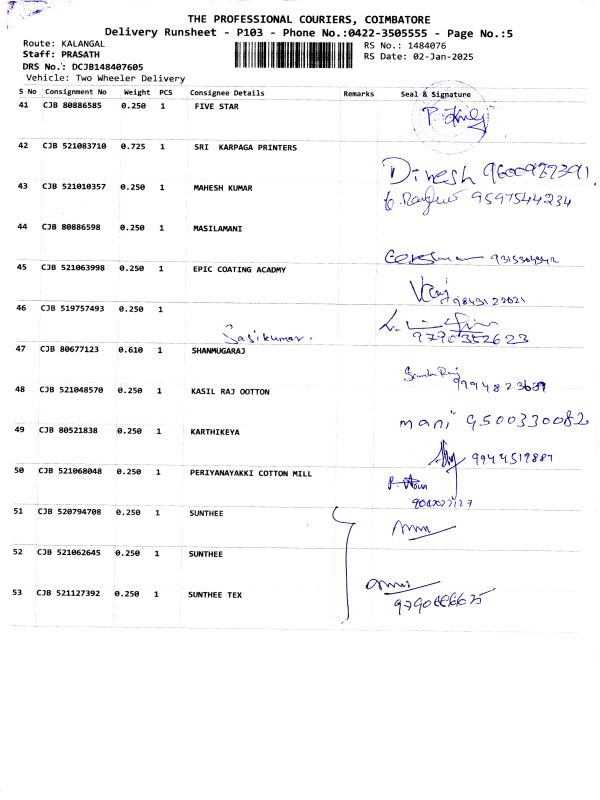 THE PROFESSIONAL COURIERS, COIMBATORE
Delivery Runsheet - P103 - Phone No.:0422-3505555 - Page No.:5
Route: KALANGAL
RS No.: 1484076
Staff: PRASATH
RS Date: 02-Jan-2025
DRS No.: DCJB148407605
Vehicle: Two Wheeler Delivery
S No Consignment No Weight PCS Consignee Details Remarks Seal & Signature
41 CJB 80886585 0.250 1 FIVE STAR
42 CJB 521083710 0.725 1 SRI KARPAGA PRINTERS
Dinesh
43 CJB 521010357 0.250 1 MAHESH KUMAR
9597544234
44 CJB 80886598 0.250 1 MASILAMANI
45 CJB 521063998 0.250 1 EPIC COATING ACADMY
9843122021
46 CJB 519757493 0.250 1
Sasikumar.
9790352623
47 CJB 80677123 0.610 1 SHANMUGARAJ
48 CJB 521048570 0.250 1 KASIL RAJ OOTTON
mani 9500330082
49 CJB 80521838 0.250 1 KARTHIKEYA
50 CJB 521068048 0.250 1 PERIYANAYAKKI COTTON MILL
51 CJB 520794708 0.250 1 SUNTHEE
52 CJB 521062645 0.250 1 SUNTHEE
53 CJB 521127392 0.250 1 SUNTHEE TEX